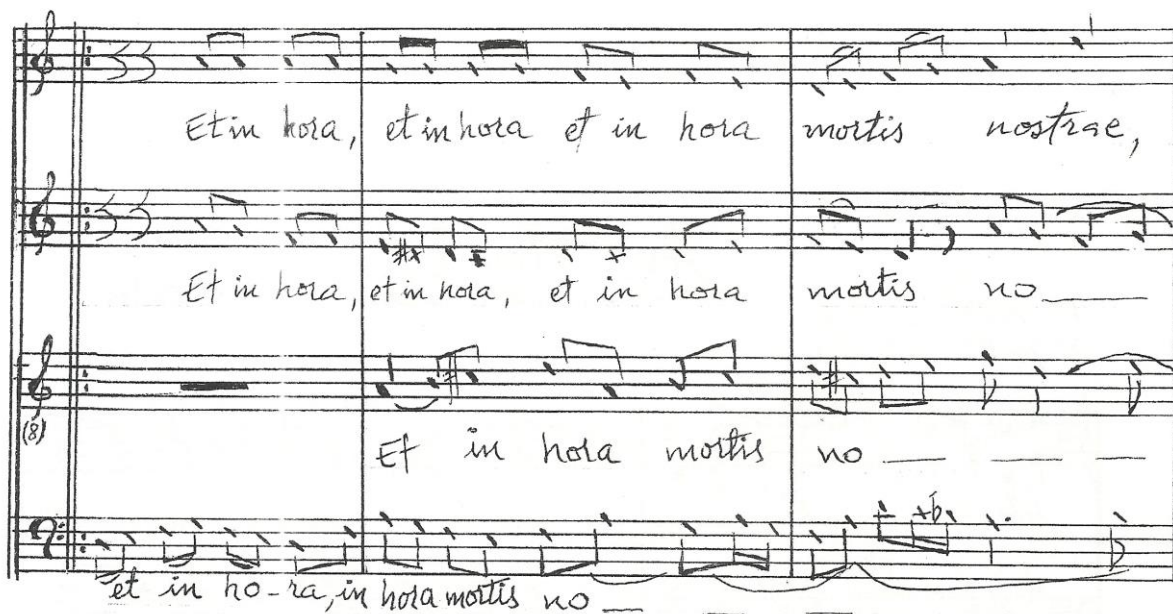 Et in hora, et in hora et in hora mortis nostrae,
Et in hora, et in hora, et in hora mortis no____
(8)
Et in hora mortis no __ __ __
et in ho-ra, in hora mortis no __ __ __